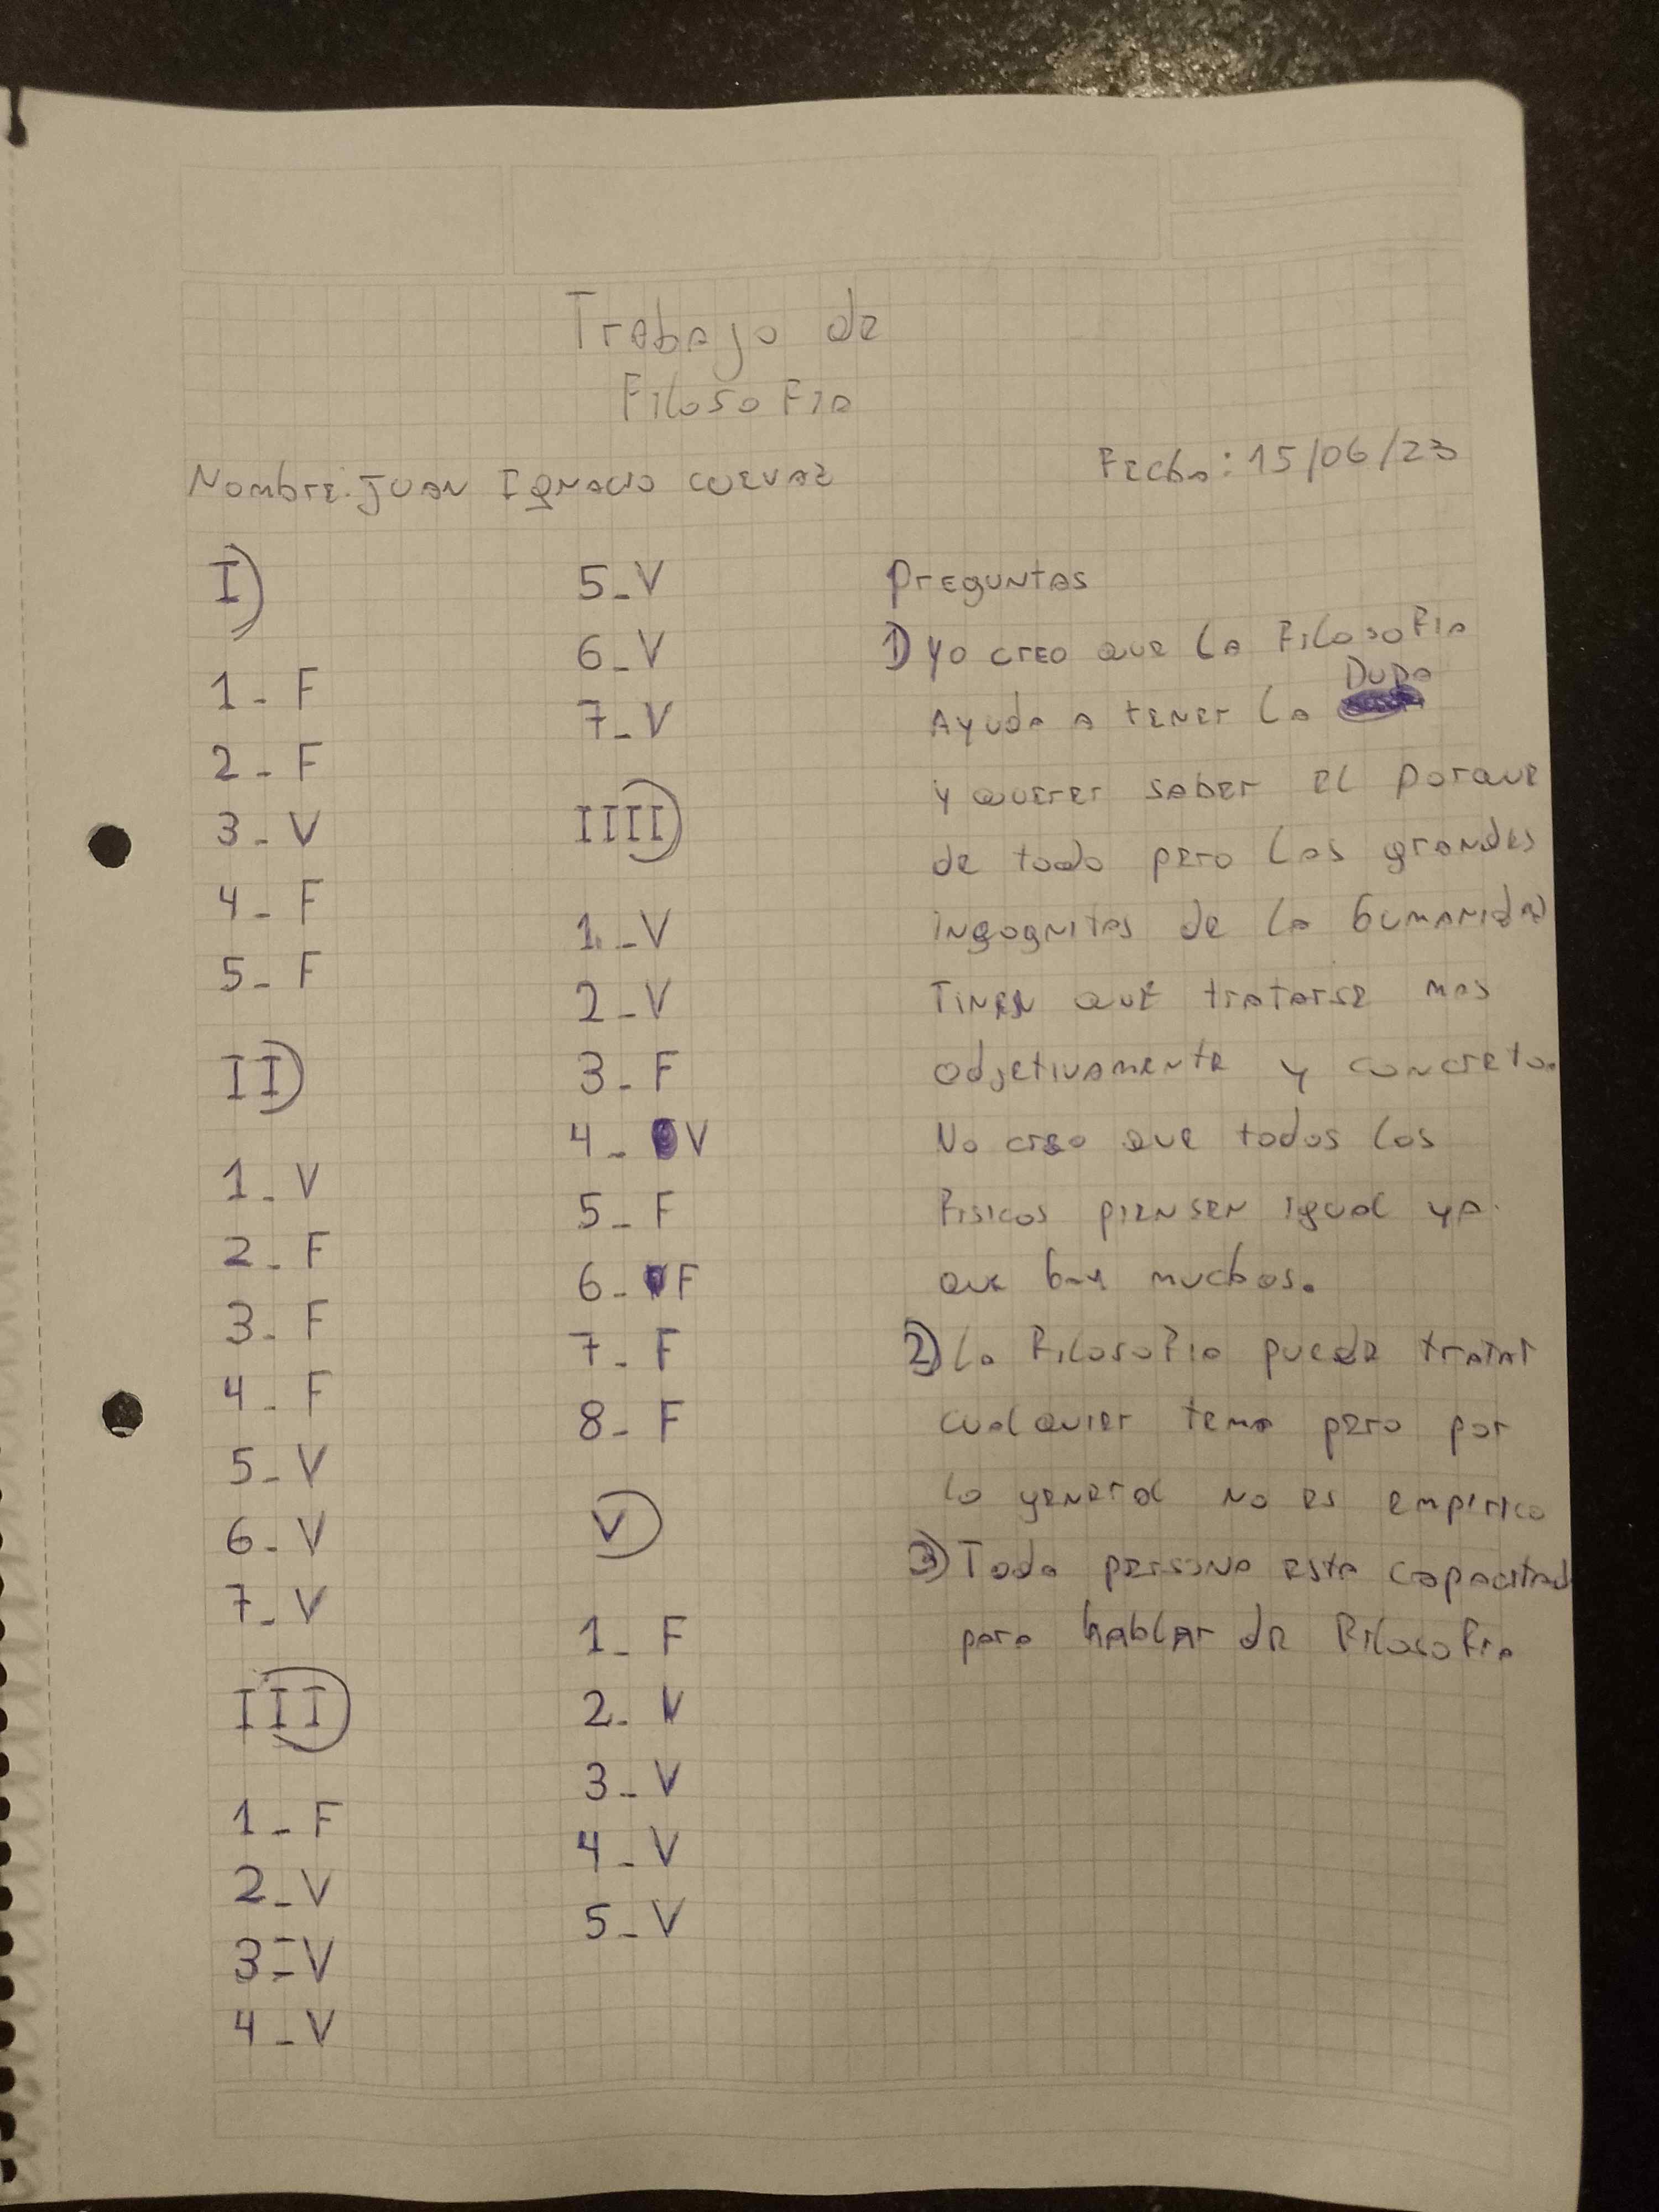 Trabajo de
Filosofia
Nombre: Juan Ignacio Cuevaz
Fecha: 15/06/23
I)
1- F
2- F
3- V
4- F
5- F
II)
1- V
2- F
3- F
4- F
5- V
6- V
7- V
III)
1- F
2- V
3- V
4- V
5- V
6- V
7- V
IIII)
1- V
2- V
3- F
4- V
5- F
6- F
7- F
8- F
V)
1- F
2- V
3- V
4- V
5- V
Preguntas
1) Yo creo que la Filosofia
Ayuda a tener la Duda
y querer saber el porque
de todo pero las grandes
ingognitas de la humanidad
Tinen que tratarse mas
odjetivamente y concreto.
No creo que todos los
Fisicos piensen igual ya
que hay muchos.
2) La Filosofia puede tratar
cualquier tema pero por
lo general no es empirico
3) Toda persona esta capacitad
para hablar de Filosofia